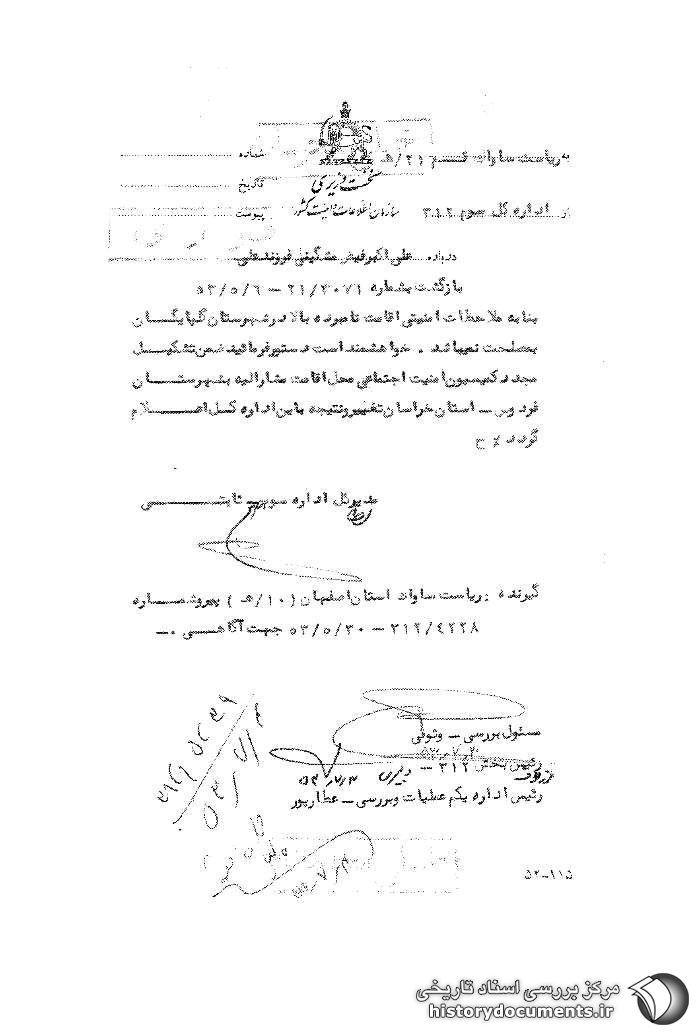 نخست وزیری
سازمان اطلاعات و امنیت کشور
به ریاست ساواک قم ۲۱/هـ
از اداره کل سوم ۳۱۲
شماره
تاریخ
پیوست
درباره علی اکبر فیض مشگینی فرزند علی
بازگشت بشماره ۲۱/۳۰۷۱ – ۵۳/۵/۶
بنا به ملاحظات امنیتی اقامت نامبرده بالا در شهرستان گلپایگان
بمصلحت نمیباشد . خواهشمند است دستور فرمائید ضمن تشکیل
مجدد کمیسیون امنیت اجتماعی محل اقامت مشارالیه بشهرستان
فردوس – استان خراسان تغییر و نتیجه باین اداره کل اعلام
گردد ٪ ح
مدیرکل اداره سوم – ثابتی
گیرنده : ریاست ساواک استان اصفهان (۱۰/هـ) پیرو شماره
۳۱۲/۴۲۲۸ – ۵۳/۵/۳۰ جهت آگاهی –
مسئول بررسی – وثوقی
رئیس بخش ۳۱۲ –
رئیس اداره یکم عملیات و بررسی – عطارپور
۵۲-۱۱۵
مرکز بررسی اسناد تاریخی
historydocuments.ir